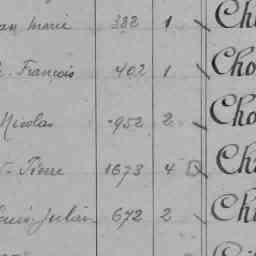 Marie 382 1 Ch
François 402 1 Cho
Nicolas 952 2 Cho
Pierre 1673 4 Ch
Louis Julien 672 2 Ch